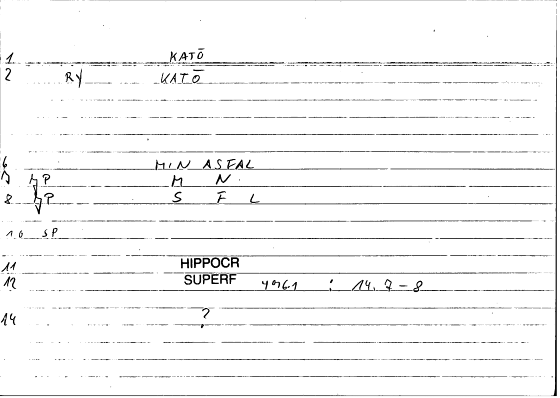 1 KATŌ
2 RY KATŌ
6 MIN ASFAL
P M N
8 P S F L
10 SP
11 HIPPOCR
12 SUPERF : 14. 7-8
14 ?